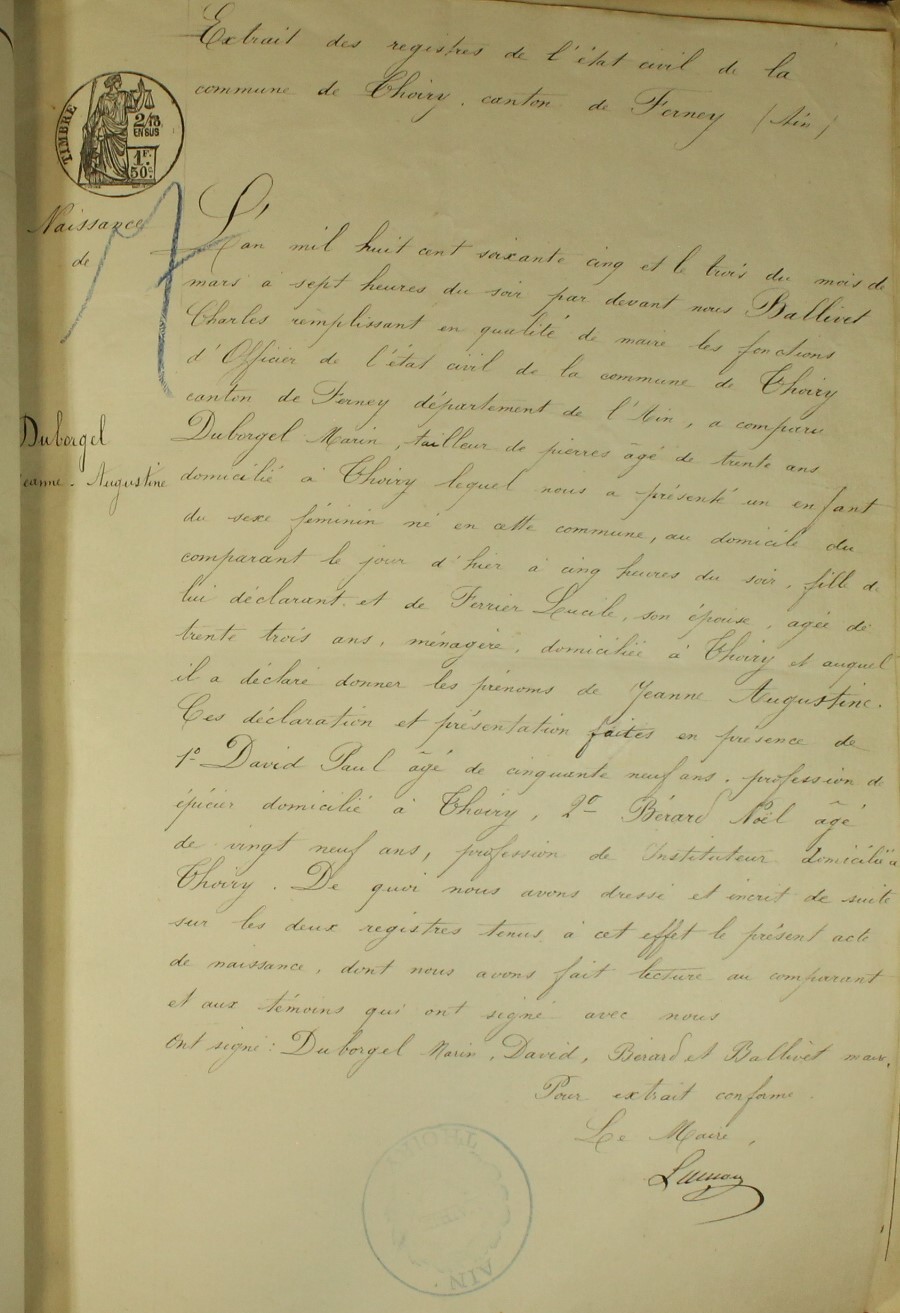 Extrait des registres de l'état civil de la
commune de Thoiry, canton de Ferney (Ain)
TIMBRE
2/10
EN SUS
1F.
50c.
Naissance
de
Duborgel
Jeanne-Augustine
L'an mil huit cent soixante cinq et le trois du mois de
mars à sept heures du soir par devant nous Ballivet
Charles remplissant en qualité de maire les fonctions
d'Officier de l'état civil de la commune de Thoiry
canton de Ferney département de l'Ain, a comparu
Duborgel Marin, tailleur de pierres âgé de trente ans
domicilié à Thoiry lequel nous a présenté un enfant
du sexe féminin né en cette commune, au domicile du
comparant le jour d'hier à cinq heures du soir, fille de
lui déclarant, et de Ferrier Lucile, son épouse, agée de
trente trois ans, ménagère, domiciliée à Thoiry et auquel
il a déclaré donner les prénoms de Jeanne Augustine.
Ces déclaration et présentation faites en présence de
1º David Paul âgé de cinquante neuf ans, profession d
épicier domicilié à Thoiry, 2º Bérard Noël âgé
de vingt neuf ans, profession de Instituteur domicilié à
Thoiry. De quoi nous avons dressé et incrit de suite
sur les deux registres tenus à cet effet le présent acte
de naissance, dont nous avons fait lecture au comparant
et aux témoins qui ont signé avec nous
Ont signé: Duborgel Marin, David, Bérard et Ballivet maire.
Pour extrait conforme.
Le Maire,
THOIRY
AIN